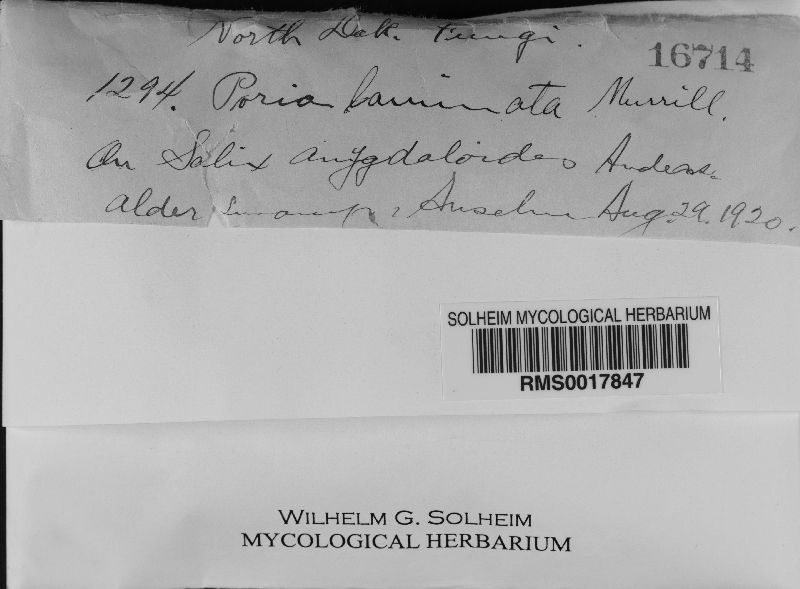 North Dak. Fungi.
16714
1294. Poria laminata Murrill.
On Salix amygdaloides Anderss.
alder swamp, Anselm Aug. 29. 1920.
SOLHEIM MYCOLOGICAL HERBARIUM
RMS0017847
WILHELM G. SOLHEIM
MYCOLOGICAL HERBARIUM